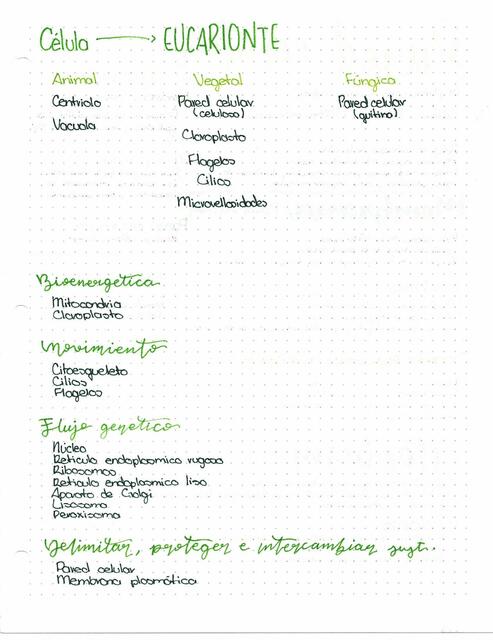 Célula → EUCARIONTE
Animal Vegetal Fúngica
Centriolo Pared celular Pared celular
(celulosa) (quitina)
Vacuola
Cloroplasto
Flagelos
Cilios
Microvellosidades
Bioenergética
Mitocondria
Cloroplasto
Movimiento
Citoesqueleto
Cilios
Flagelos
Flujo genético
Núcleo
Retículo endoplasmico rugoso
Ribosomas
Retículo endoplasmico liso
Aparato de Golgi
Lisosoma
Peroxisoma
Delimitar, proteger e intercambiar sust.
Pared celular
Membrana plasmática